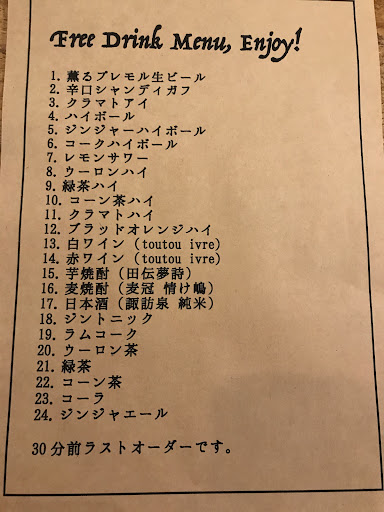 Free Drink Menu, Enjoy!
1. 薫るプレモル生ビール
2. 辛口シャンディガフ
3. クラマトアイ
4. ハイボール
5. ジンジャーハイボール
6. コークハイボール
7. レモンサワー
8. ウーロンハイ
9. 緑茶ハイ
10. コーン茶ハイ
11. クラマトハイ
12. ブラッドオレンジハイ
13. 白ワイン (toutou ivre)
14. 赤ワイン (toutou ivre)
15. 芋焼酎 (田伝夢詩)
16. 麦焼酎 (麦冠 情け嶋)
17. 日本酒 (諏訪泉 純米)
18. ジントニック
19. ラムコーク
20. ウーロン茶
21. 緑茶
22. コーン茶
23. コーラ
24. ジンジャエール
30分前ラストオーダーです。